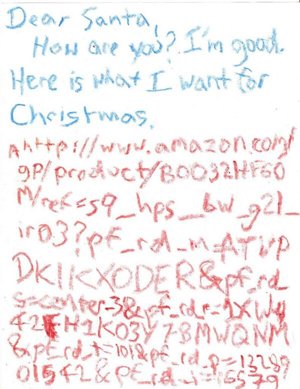 Dear Santa,
How are you? I'm good.
Here is what I want for
Christmas.
A http://www.amazon.com/
gp/product/B0032HF60
M/ref=s9_hps_bw_g21_
ir03?pf_rd_m=ATVP
DKIKX0DER&pf_rd_
s=center-3&pf_rd_r=1XWY
42FH1K03Y78MWQNM
&pf_rd_t=101&pf_rd_p=12280
01542&pf_rd_i=165397